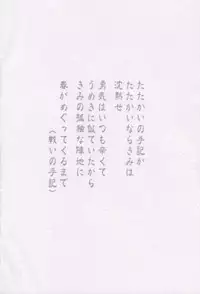 たたかいの手記か
たたかいならきみは
沈黙せ
勇気はいつも辛くて
うめきに似ていたから
きみの孤独な陣地に
春がめぐってくるまで
(戦いの手記)